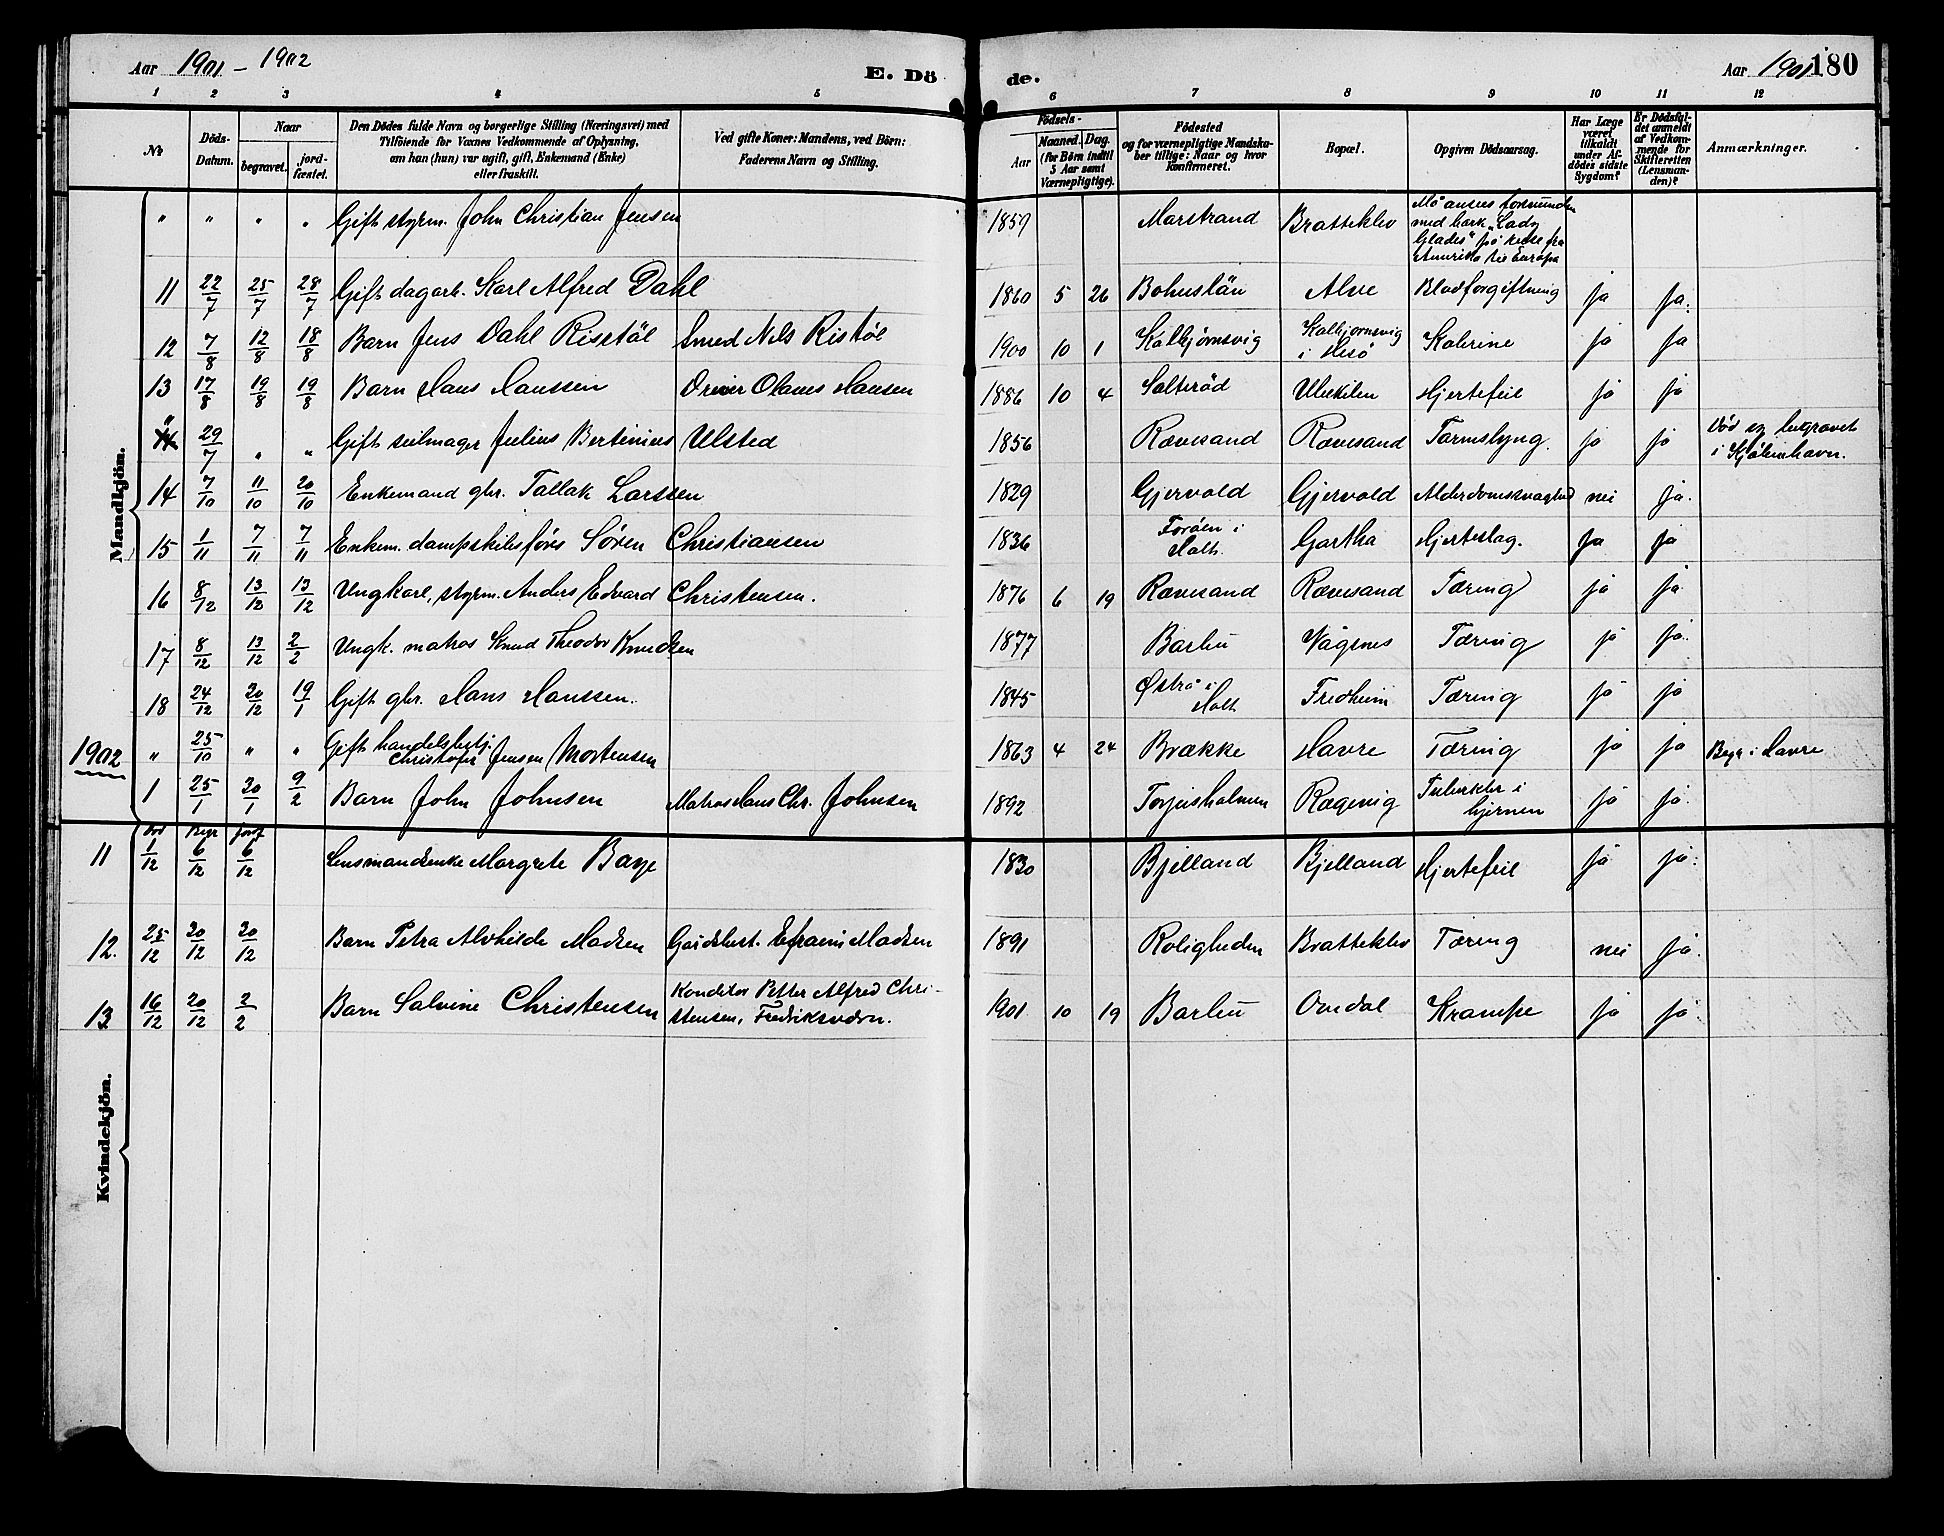 Aar 1901 - 1902
E. Dö
de.
Aar 1901 180
1 2 3 4 5 6 7 8 9 10 11 12
No
Döds-Datum.
Naar
begravet.
jordfæstet.
Den Dödes fulde Navn og borgerlige Stilling (Næringsvei) med Tilföiende for Voxnes Vedkommende af Oplysning, om han (hun) var ugift, gift, Enkemand (Enke) eller fraskilt.
Ved gifte Koner: Mandens, ved Börn: Faderens Navn og Stilling.
Födsels-
Aar
Maaned. Dag.
(for Börn indtil 5 Aar samt Værnepligtige).
Födested og for værnepligtige Mandskaber tillige: Naar og hvor konfirmeret.
Bopæl.
Opgiven Dödsaarsag.
Har Læge været tilkaldt under Afdödes sidste Sygdom?
Er Dödsfaldet anmeldt af Vedkommende for Skifteretten (Lensmanden)?
Anmærkninger.
Mandkjön.
" " " " Gift styrm. John Christian Jensen 1859 Marstrand Bratteklev Må ansees forsvunden med bark "Lady Glades" på reise fra Amerika til Europa
11 22/7 25/7 28/7 Gift dagarb. Karl Alfred Dahl 1860 5 26 Bohuslän Alve Blodforgiftning ja ja.
12 7/8 12/8 18/8 Barn Jens Dahl Risstöl Smed Nils Ristöl 1900 10 1 Kolbjørnsvig Kolbjornsvig i Hisö Kolerine ja ja
13 17/8 19/8 19/8 Barn Hans Hanssen Olaves Hansen 1886 10 4 Salteröd Ulvekilen Hjertefeil ja ja
" 29/7 " " Gift seilmager Julius Bertinius Ulsted 1856 Rævesand Rævesand Tarmslyng. ja ja Död og begravet i Kjöbenhavn.
14 7/10 11/10 20/10 Enkemand gbr. Tallak Larssen 1829 Gjervold Gjervold Alderdomssvaghed nei ja.
15 1/11 7/11 7/11 Enkem. dampskibsförer Sören Christiansen 1836 i Holt. Gartha Hjerteslag. ja ja
16 8/12 13/12 13/12 Ungkarl, styrm. Anders Edvard Christensen. 1876 6 19 Rævesand Rævesand Tæring ja ja
17 8/12 13/12 2/2 Ungk. matros Knud Theodor Knudsen 1877 Barbu Vågsnes Tæring ja ja.
18 24/12 30/12 19/1 Gift gbr. Hans Hanssen. 1845 Østrå i Holt Fredheim Tæring ja ja
" 25/10 " " Gift handelsbetj. Christofer Jensen Mortensen 1863 4 24 Brække Havre Tæring ja ja Begr. i Havre
1902
1 25/1 30/1 9/2 Barn John Johnsen Matros Hans Chr. Johnsen 1892 Torjusholmen Rægevig Tuberkler i hjernen ja ja.
Död Begr Jordf
Kvindekjön.
11 1/12 6/12 6/12 Lensmandsenke Margrete Baye 1830 Bjelland Bjelland Hjertefeil ja ja.
12. 25/12 30/12 30/12 Barn Petra Alvhilde Madsen Gårdbest. Efraim Madsen 1891 Roligheden Bratteklev Tæring nei ja.
13 16/12 20/12 2/2 Barn Salvine Christensen Konditor Petter Alfred Christensen, Fredriksværn. 1901 10 19 Barbu Omdal Krampe ja ja.